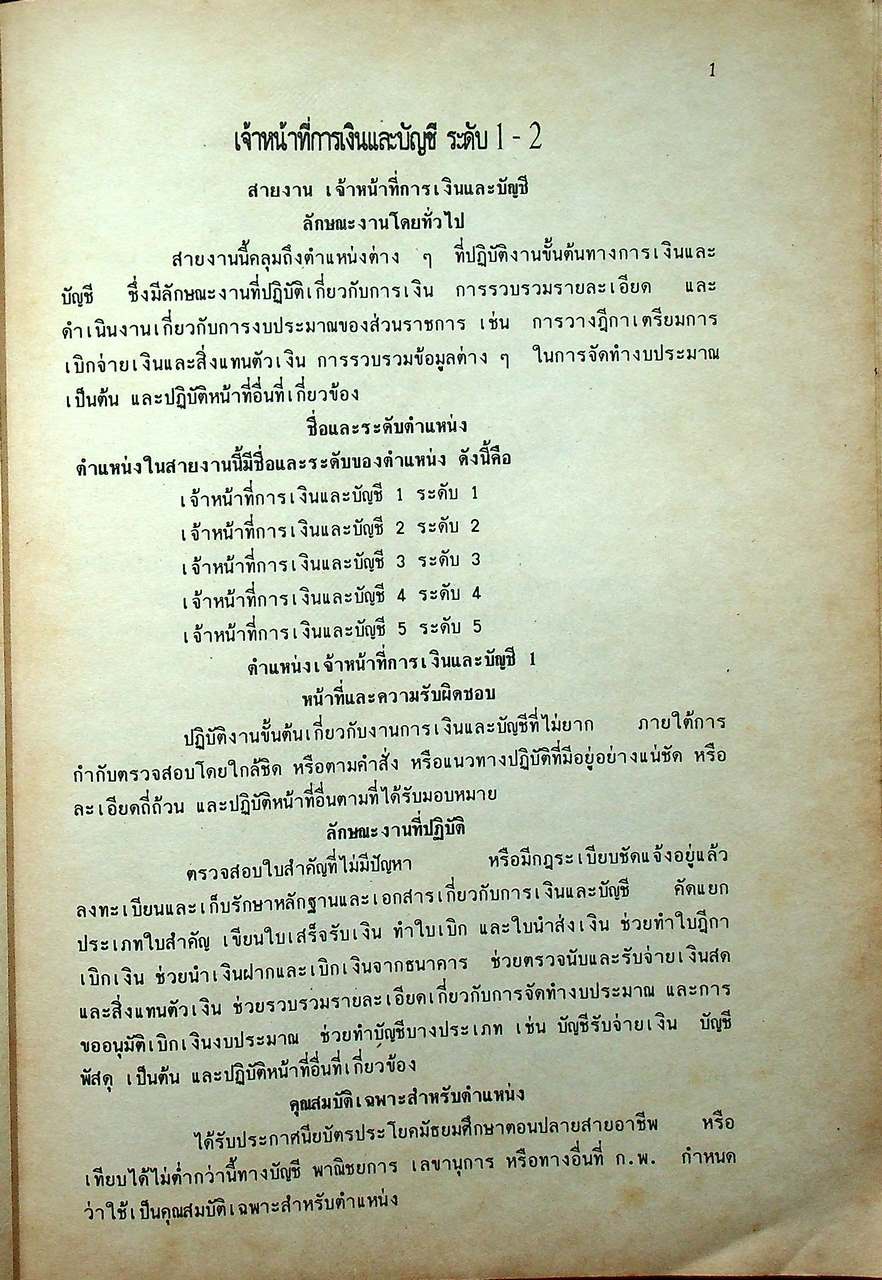 1
เจ้าหน้าที่การเงินและบัญชี ระดับ 1 - 2
สายงาน เจ้าหน้าที่การเงินและบัญชี
ลักษณะงานโดยทั่วไป
สายงานนี้คลุมถึงตำแหน่งต่าง ๆ ที่ปฏิบัติงานขั้นต้นทางการเงินและ
บัญชี ซึ่งมีลักษณะงานที่ปฏิบัติเกี่ยวกับการเงิน การรวบรวมรายละเอียด และ
ดำเนินงานเกี่ยวกับการงบประมาณของส่วนราชการ เช่น การวางฎีกาเตรียมการ
เบิกจ่ายเงินและสิ่งแทนตัวเงิน การรวบรวมข้อมูลต่าง ๆ ในการจัดทำงบประมาณ
เป็นต้น และปฏิบัติหน้าที่อื่นที่เกี่ยวข้อง
ชื่อและระดับตำแหน่ง
ตำแหน่งในสายงานนี้มีชื่อและระดับของตำแหน่ง ดังนี้คือ
เจ้าหน้าที่การเงินและบัญชี 1 ระดับ 1
เจ้าหน้าที่การเงินและบัญชี 2 ระดับ 2
เจ้าหน้าที่การเงินและบัญชี 3 ระดับ 3
เจ้าหน้าที่การเงินและบัญชี 4 ระดับ 4
เจ้าหน้าที่การเงินและบัญชี 5 ระดับ 5
ตำแหน่งเจ้าหน้าที่การเงินและบัญชี 1
หน้าที่และความรับผิดชอบ
ปฏิบัติงานขั้นต้นเกี่ยวกับงานการเงินและบัญชีที่ไม่ยาก ภายใต้การ
กำกับตรวจสอบโดยใกล้ชิด หรือตามคำสั่ง หรือแนวทางปฏิบัติที่มีอยู่อย่างแน่ชัด หรือ
ละเอียดถี่ถ้วน และปฏิบัติหน้าที่อื่นตามที่ได้รับมอบหมาย
ลักษณะงานที่ปฏิบัติ
ตรวจสอบใบสำคัญที่ไม่มีปัญหา หรือมีกฎระเบียบชัดแจ้งอยู่แล้ว
ลงทะเบียนและเก็บรักษาหลักฐานและเอกสารเกี่ยวกับการเงินและบัญชี คัดแยก
ประเภทใบสำคัญ เขียนใบเสร็จรับเงิน ทำใบเบิก และใบนำส่งเงิน ช่วยทำใบฎีกา
เบิกเงิน ช่วยนำเงินฝากและเบิกเงินจากธนาคาร ช่วยตรวจนับและรับจ่ายเงินสด
และสิ่งแทนตัวเงิน ช่วยรวบรวมรายละเอียดเกี่ยวกับการจัดทำงบประมาณ และการ
ขออนุมัติเบิกเงินงบประมาณ ช่วยทำบัญชีบางประเภท เช่น บัญชีรับจ่ายเงิน บัญชี
พัสดุ เป็นต้น และปฏิบัติหน้าที่อื่นที่เกี่ยวข้อง
คุณสมบัติเฉพาะสำหรับตำแหน่ง
ได้รับประกาศนียบัตรประโยคมัธยมศึกษาตอนปลายสายอาชีพ หรือ
เทียบได้ไม่ต่ำกว่านี้ทางบัญชี พาณิชยการ เลขานุการ หรือทางอื่นที่ ก.พ. กำหนด
ว่าใช้เป็นคุณสมบัติเฉพาะสำหรับตำแหน่ง